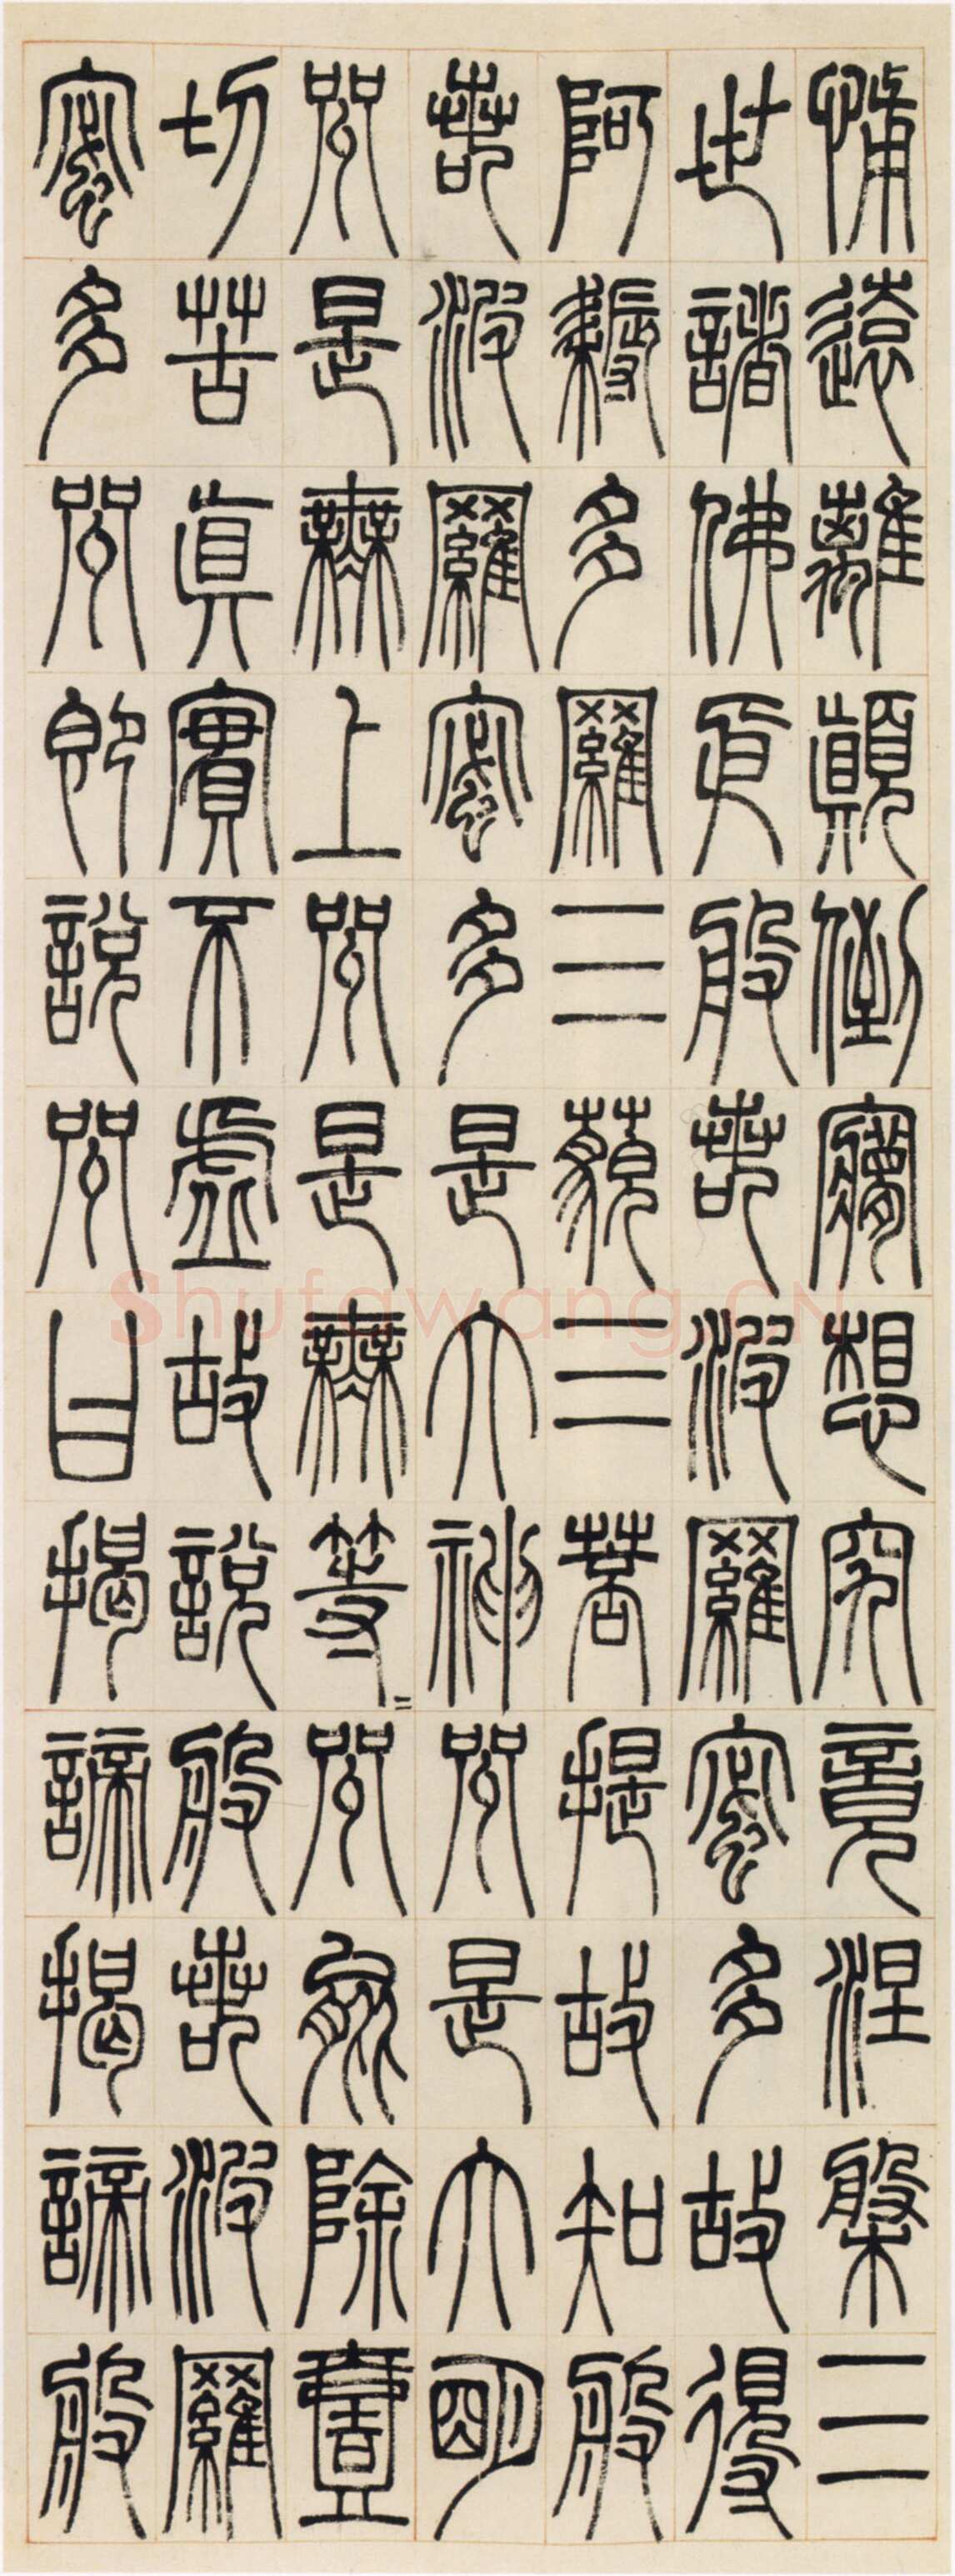 怖遠離顛倒夢想究竟涅槃三
世諸佛依般若波羅蜜多故得
阿耨多羅三藐三菩提故知般
若波羅蜜多是大神咒是大明
咒是無上咒是無等=咒能除壹
切苦真實不虛故說般若波羅
蜜多咒即說咒曰揭諦揭諦般
Shufawang.CN